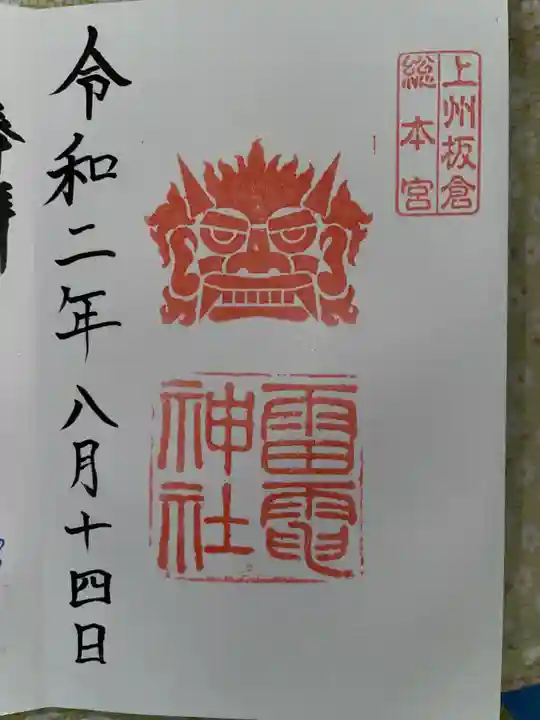 上州板倉
総本宮
雷電
神社
令和二年八月十四日
奉拝